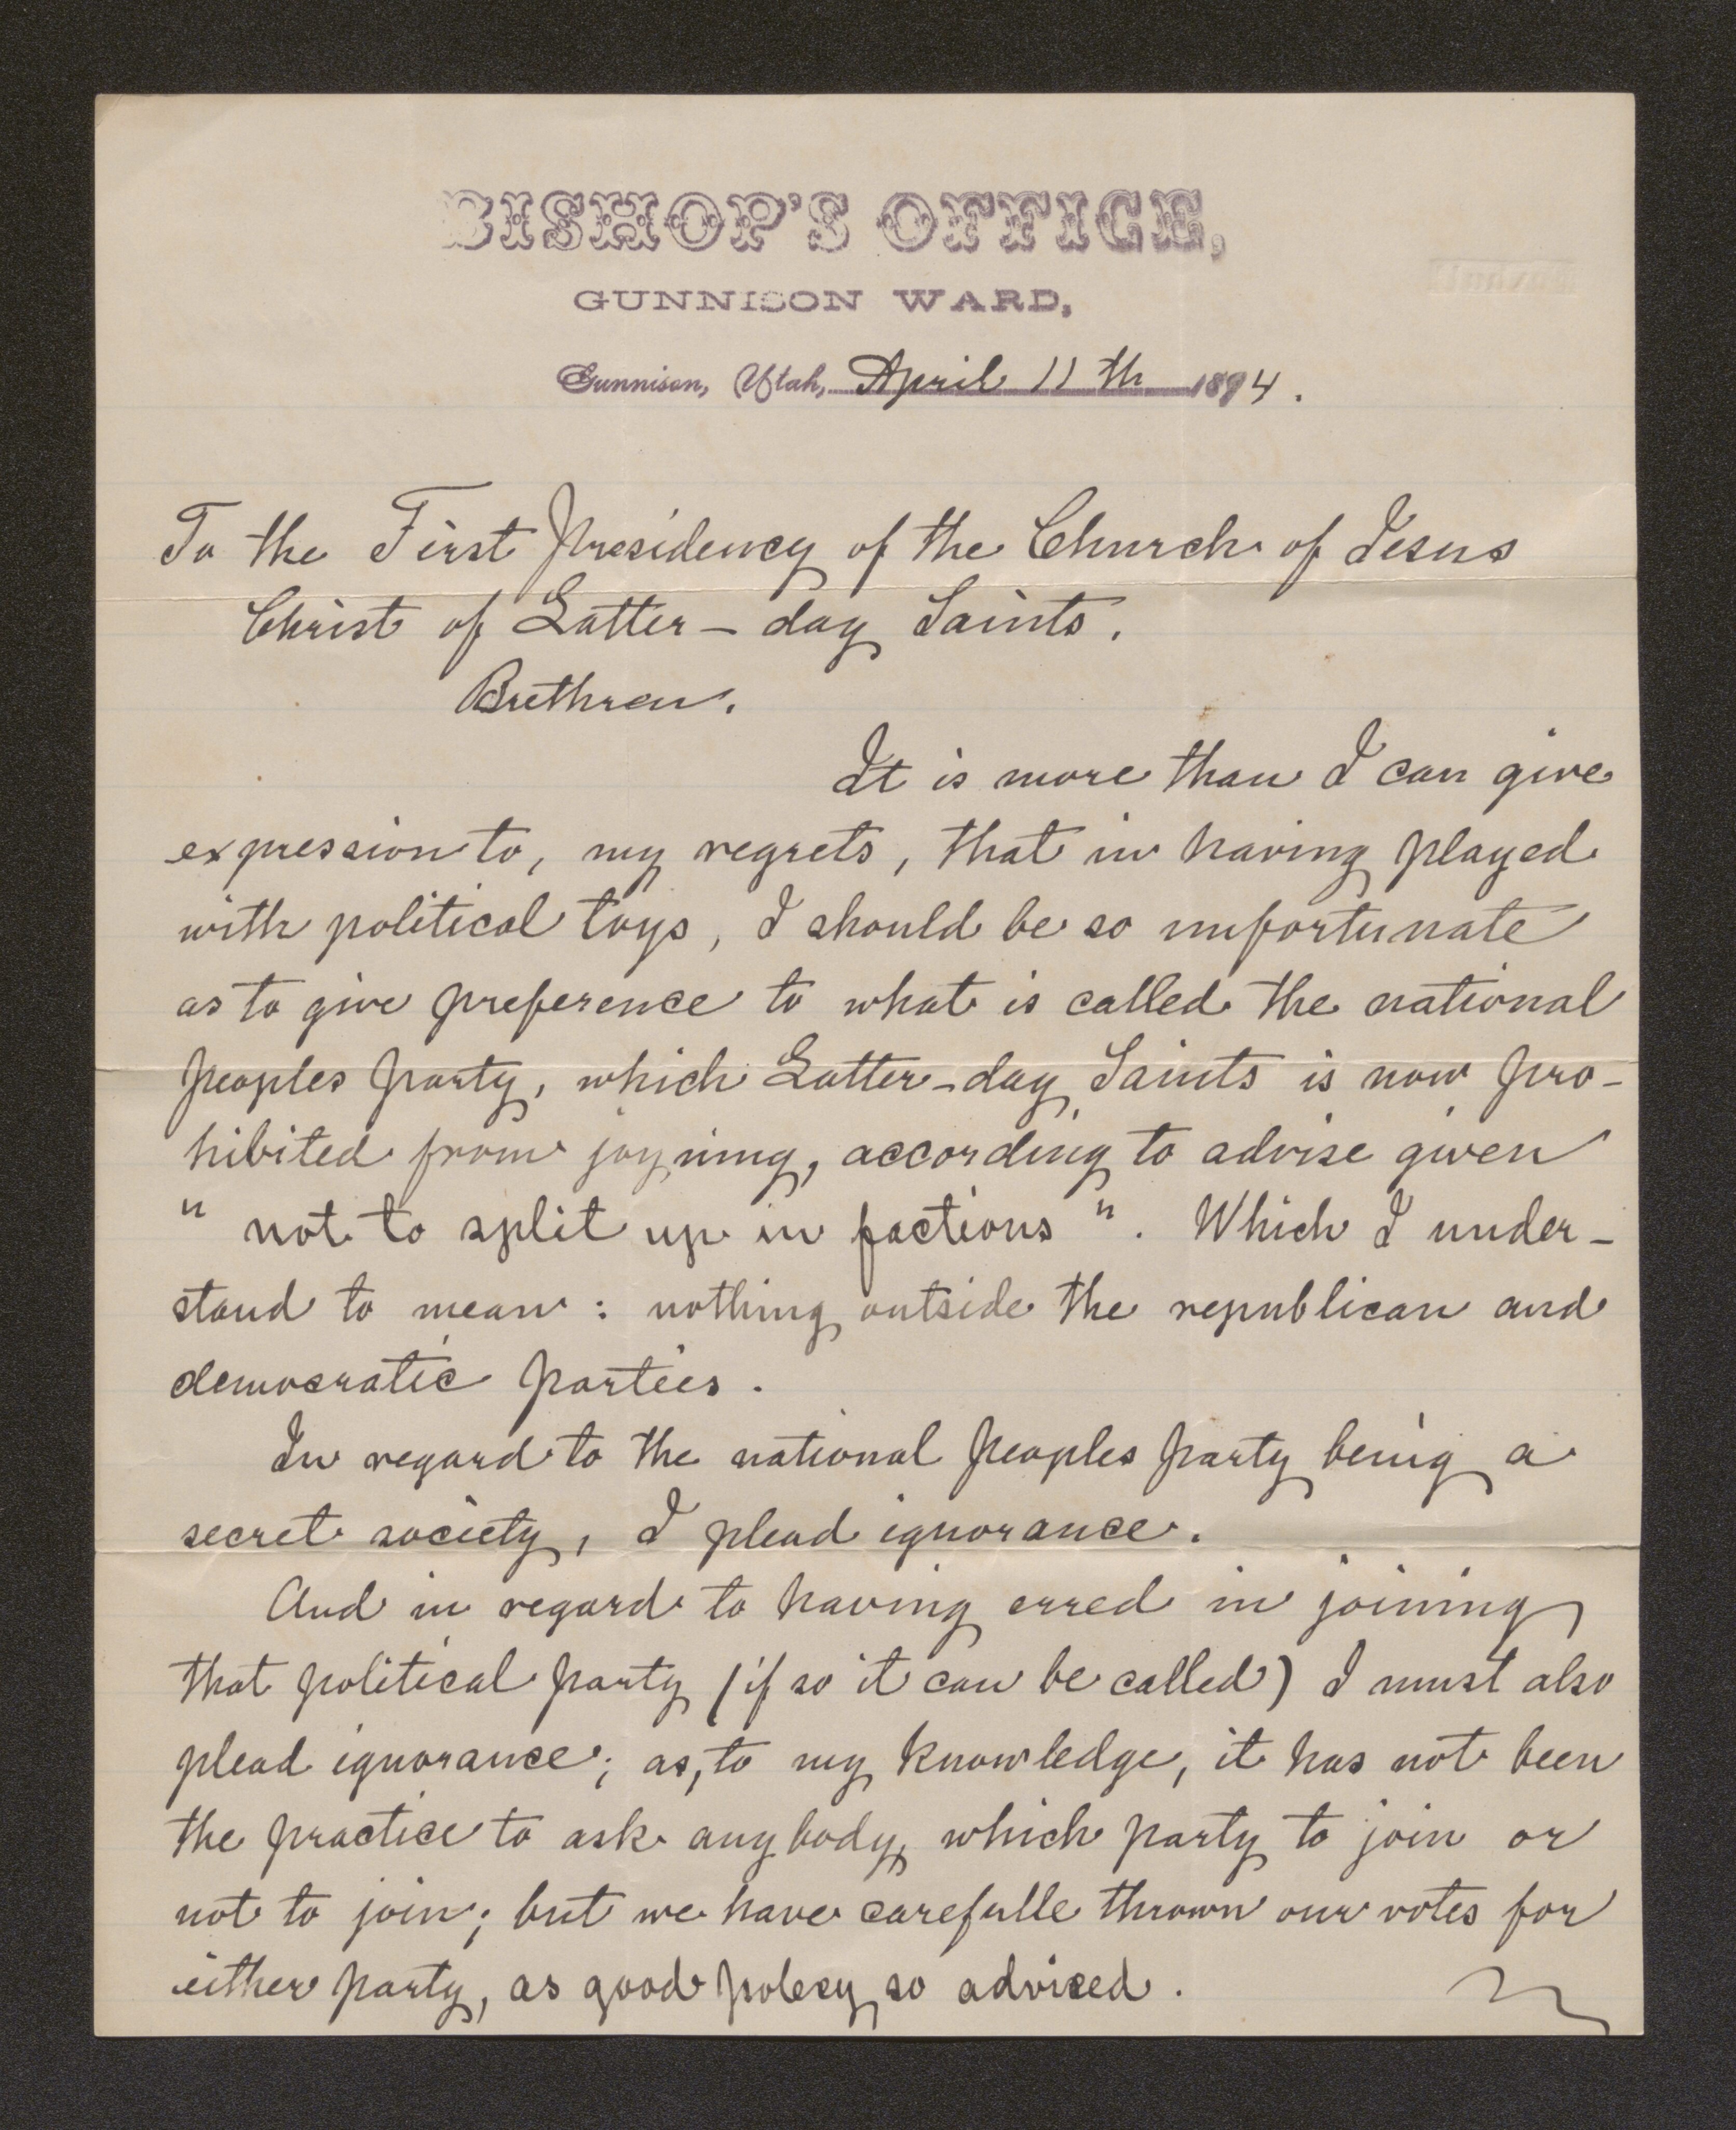 BISHOP'S OFFICE,
GUNNISON WARD,
Gunnison, Utah, April 11th 1894.
To the First Presidency of the Church of Jesus
Christ of Latter-day Saints.
Brethren.
It is more than I can give
expression to, my regrets, that in having played
with political toys, I should be so unfortunate
as to give preference to what is called the national
peoples party, which Latter-day Saints is now pro-
hibited from joyning, according to advise given
"not to split up in factions". Which I under-
stand to mean: nothing outside the republican and
democratic parties.
In regard to the national peoples party being a
secret society, I plead ignorance.
And in regard to having erred in joining
that political party (if so it can be called) I must also
plead ignorance; as, to my knowledge, it has not been
the practice to ask anybody, which party to join or
not to join; but we have carefulle thrown our votes for
either party, as good policy so advised.